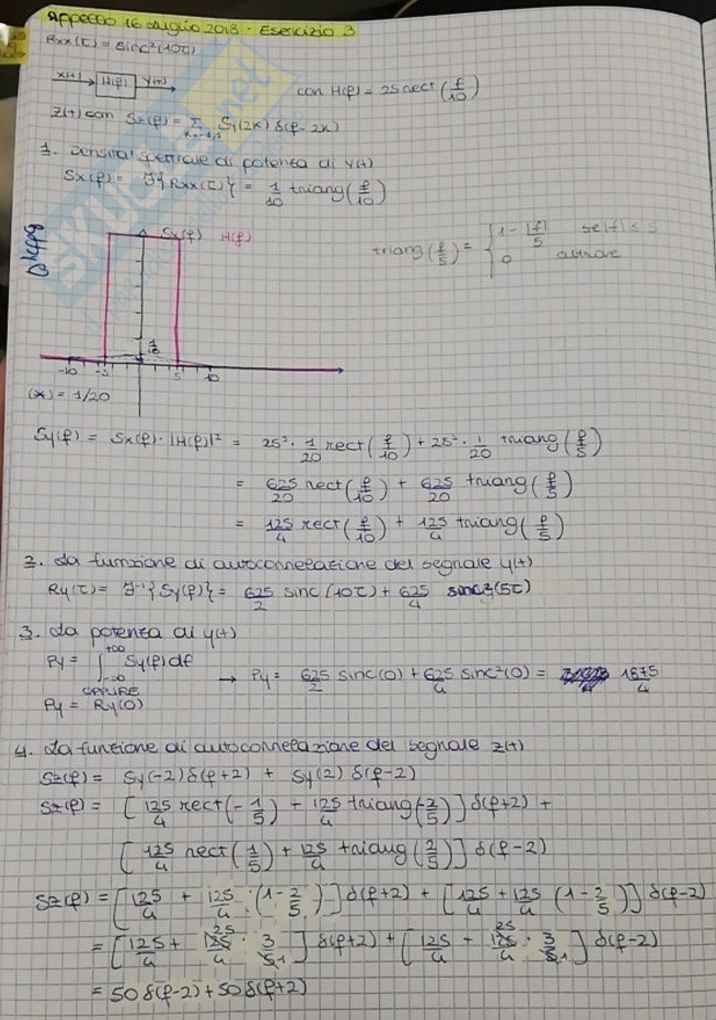 Appello 16 Luglio 2018 - Esercizio 3
Rxx(τ) = sinc²(10τ)
x(t) H(f) Y(t) con H(f) = 25 rect(f/10)
Z(t) con Sz(f) = Σ Sy(2k) δ(f-2k)
1. Densità spettrale di potenza di Y(t)
Sx(f) = F{Rxx(τ)} = 1/10 triang(f/10)
Sx(f) H(f)
triang(f/5) = { 1 - |f|/5 se |f| ≤ 5
0 altrove
1/10
-10 -5 5 10
(*) = 1/20
Sy(f) = Sx(f) · |H(f)|² = 25² · 1/20 rect(f/10) + 25² · 1/20 triang(f/5)
= 625/20 rect(f/10) + 625/20 triang(f/5)
= 125/4 rect(f/10) + 125/4 triang(f/5)
2. La funzione di autocorrelazione del segnale y(t)
Ry(τ) = F⁻¹{Sy(f)} = 625/2 sinc(10τ) + 625/4 sinc²(5τ)
3. La potenza di y(t)
Py = ∫ +∞ -∞ Sy(f) df → Py = 625/2 sinc(0) + 625/4 sinc²(0) = 1875/4
OPPURE
Py = Ry(0)
4. La funzione di autocorrelazione del segnale z(t)
Sz(f) = Sy(-2) δ(f+2) + Sy(2) δ(f-2)
Sz(f) = [125/4 rect(-1/5) + 125/4 triang(-2/5)] δ(f+2) +
[125/4 rect(1/5) + 125/4 triang(2/5)] δ(f-2)
Sz(f) = [125/4 + 125/4 · (1-2/5)] δ(f+2) + [125/4 + 125/4 (1-2/5)] δ(f-2)
= [125/4 + 125/4 · 3/5] δ(f+2) + [125/4 + 125/4 · 3/5] δ(f-2)
= 50 δ(f-2) + 50 δ(f+2)